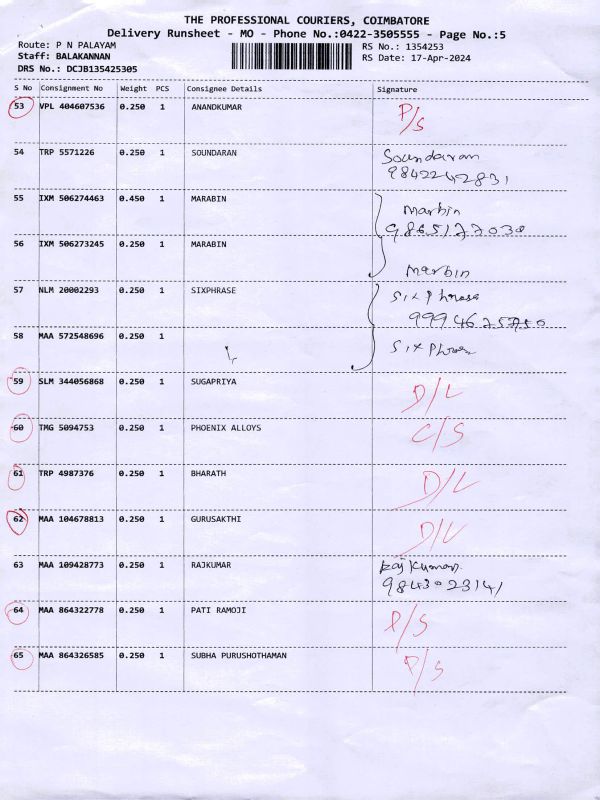 THE PROFESSIONAL COURIERS, COIMBATORE
Delivery Runsheet - MO - Phone No.:0422-3505555 - Page No.:5
Route: P N PALAYAM RS No.: 1354253
Staff: BALAKANNAN RS Date: 17-Apr-2024
DRS No.: DCJB135425305
S No Consignment No Weight PCS Consignee Details Signature
53 VPL 404607536 0.250 1 ANANDKUMAR P/S
54 TRP 5571226 0.250 1 SOUNDARAN Soundaran
9842242831
55 IXM 506274463 0.450 1 MARABIN Marbin
9865177030
56 IXM 506273245 0.250 1 MARABIN Marbin
57 NLM 20002293 0.250 1 SIXPHRASE Sixphrase
9994625750
58 MAA 572548696 0.250 1
59 SLM 344056868 0.250 1 SUGAPRIYA D/L
60 TMG 5094753 0.250 1 PHOENIX ALLOYS C/S
61 TRP 4987376 0.250 1 BHARATH D/L
62 MAA 104678813 0.250 1 GURUSAKTHI D/L
63 MAA 109428773 0.250 1 RAJKUMAR Rajkumar
9843023141
64 MAA 864322778 0.250 1 PATI RAMOJI P/S
65 MAA 864326585 0.250 1 SUBHA PURUSHOTHAMAN P/S